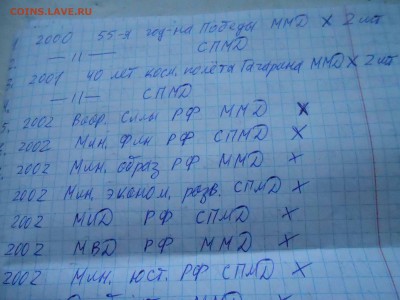 COINS.LAVE.RU
1. 2000 55-я год-на Победы ММД X 2 шт
2. —11— СПМД
3. 2001 40 лет косм. полёта Гагарина ММД X 2 шт
4. —11— СПМД
5. 2002 Воор. Силы РФ ММД X
2002 Мин. фин. РФ СПМД X
2002 Мин. образ РФ ММД X
2002 Мин. эконом. разв. СПМД X
2002 МИД РФ СПМД X
2002 МВД РФ ММД X
2002 Мин. юст. РФ СПМД X